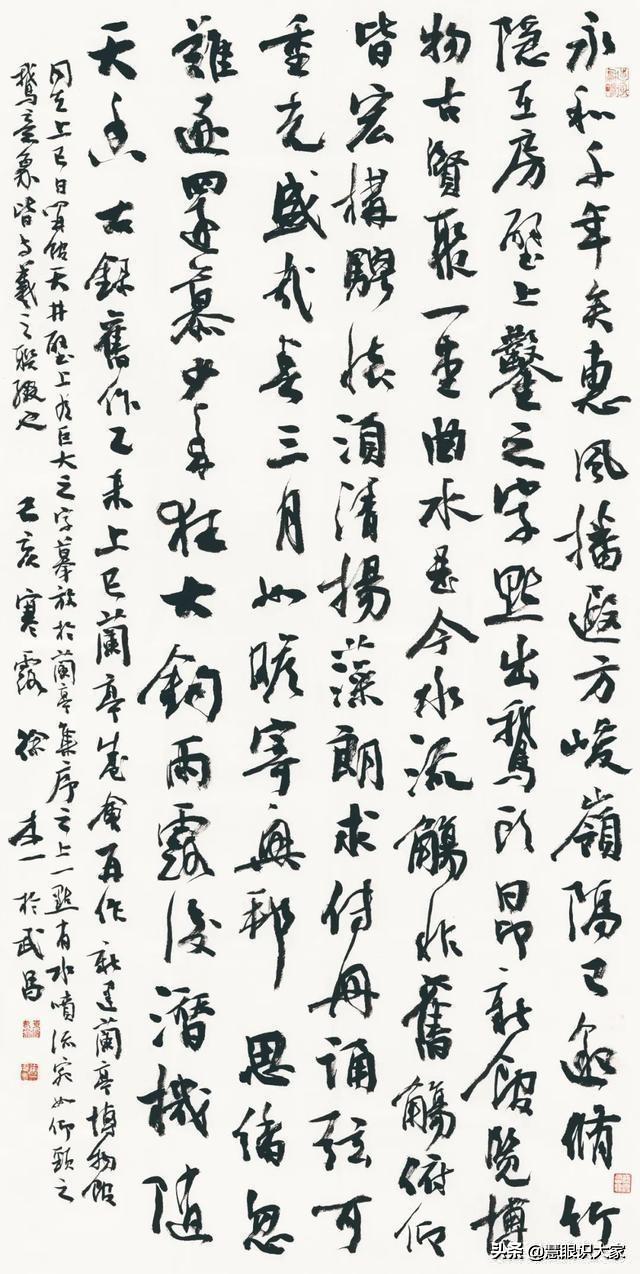 永和千年矣惠風播遐方峻嶺隔已逾脩竹
隱在房壁上鑿之字點出鵝頭昂新館覽博
物古賢聚一堂曲水是今水流觴非舊觴俯仰
皆宏構騁懷須清揚藻朗求誦弦可
重光盛哉春三月如瞻寄興 思緒忽
難逐四遠慕少年狂大鈞雨露後潛機隨
天 右錄舊作乙未上巳蘭亭會再作 新建蘭亭博物館
同在上巳日開館天井壁上有巨大之字摹放於蘭亭集序之上一點有水噴流宛如仰頸之
鵝意象皆與羲之聯綴也 己亥寒露 徐本一 於武昌
头条 @慧眼识大家